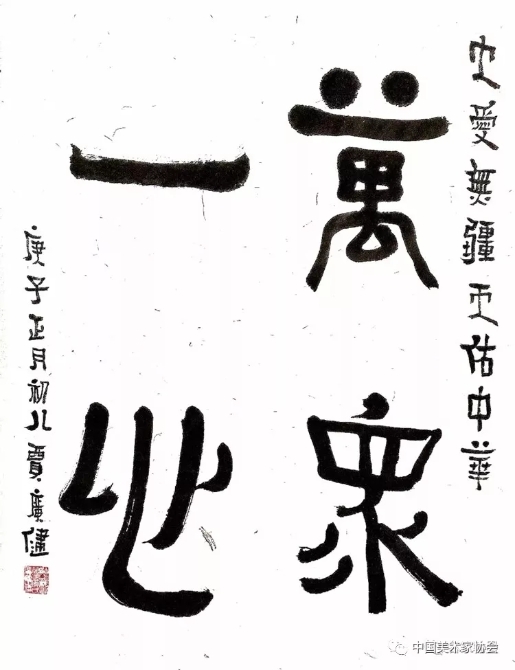 大愛無疆天佑中華
萬衆
一心
庚子正月初八賈廣健
中国美术家协会